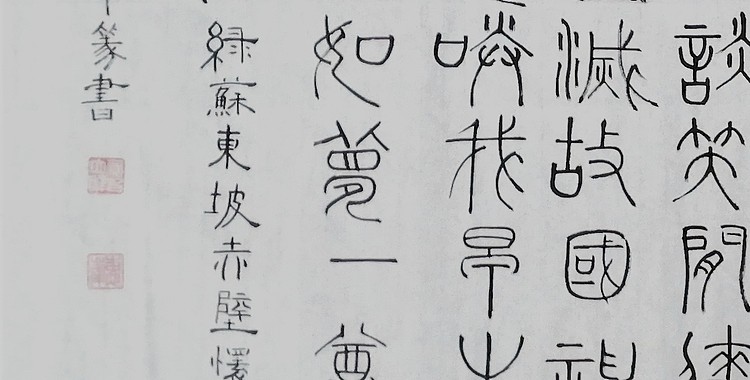 談笑閒
滅故國神
咲我早生
如夢一尊
綠蘇東坡赤壁懷
篆書